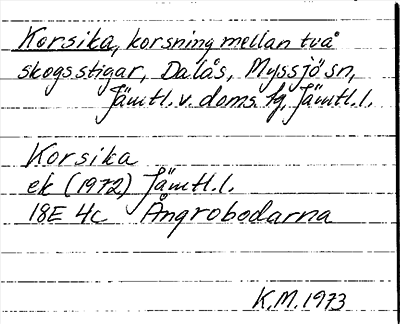 Korsika, korsning mellan två
skogsstigar, Dalås, Myssjö sn,
Jämtl. v. doms. tg, Jämtl. l.
Korsika
ek (1972) Jämtl. l.
18E 4c Ångrobodarna
K.M. 1973